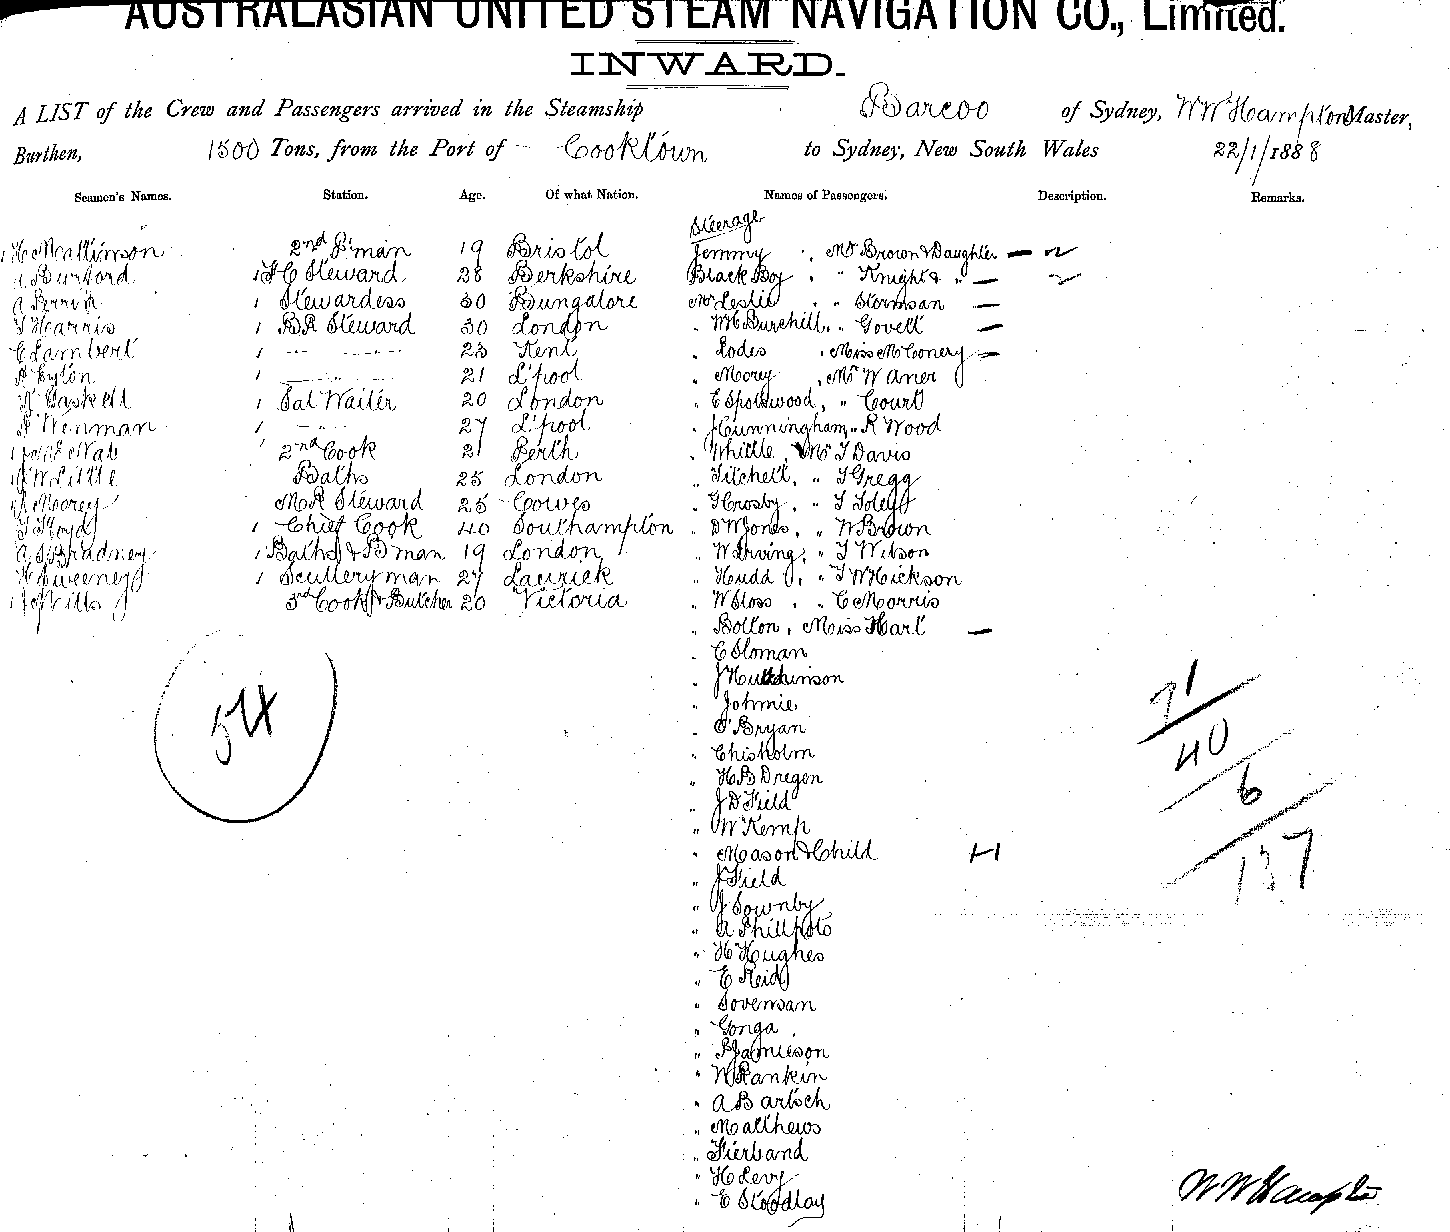 AUSTRALASIAN UNITED STEAM NAVIGATION CO., Limited.
INWARD.
A LIST of the Crew and Passengers arrived in the Steamship Barcoo of Sydney, W W Hampton Master,
Burthen, 1500 Tons, from the Port of Cooktown to Sydney, New South Wales 22/1/1888
Seamen's Names. Station. Age. Of what Nation. Names of Passengers. Description. Remarks.
Steerage
2nd P'man 19 Bristol Jemmy , Mr Brown & Daughter —
Burford Steward 28 Berkshire Black Boy " Knight & " —
A Perrin Stewardess 30 Bungalore Mr Leslie , " Stormsan —
Harris B R Steward 30 London " W H Burchill, " Govett —
C Lambert " 23 Kent " Lodes , Miss McConery —
" 21 L'pool " Morey , Mr W Aner
Gaskell Sal Waiter 20 London " E Spottswood, " Court
Wenman " 27 L'pool " J Cunningham, " R Wood
McNab 2nd Cook 21 Perth " Whittle, Mr T Davis
W Little Baths 25 London " Titchell, " T Gregg
Morey M R Steward 25 Cowes " G Crosby, " T Foley
Floyd Chief Cook 40 Southampton " D W Jones, " W Brown
Bradney Baths & B'man 19 London " W Irving, " T Wilson
Sweeney Sculleryman 27 " Hudd , " T W Hickson
Wills 3rd Cook & Butcher 20 Victoria " W Sloss , " C Morris
" Bolton , Miss Hart —
" C Sloman
" J Hutchinson
" Johnnie
" O'Bryan
" Chisholm
" H B Dregen
" J D Field
" W Kemp
" Mason & Child
" J Field
" J Sownby
" A Phillpots
" H Hughes
" E Reid
" Sovensan
" Gonga
" P Jamieson
" W Rankin
" A Bartsch
" Matthews
" Fierband
" H Levy
" E Stoodlay
54
91
40
6
137
W W Hampton